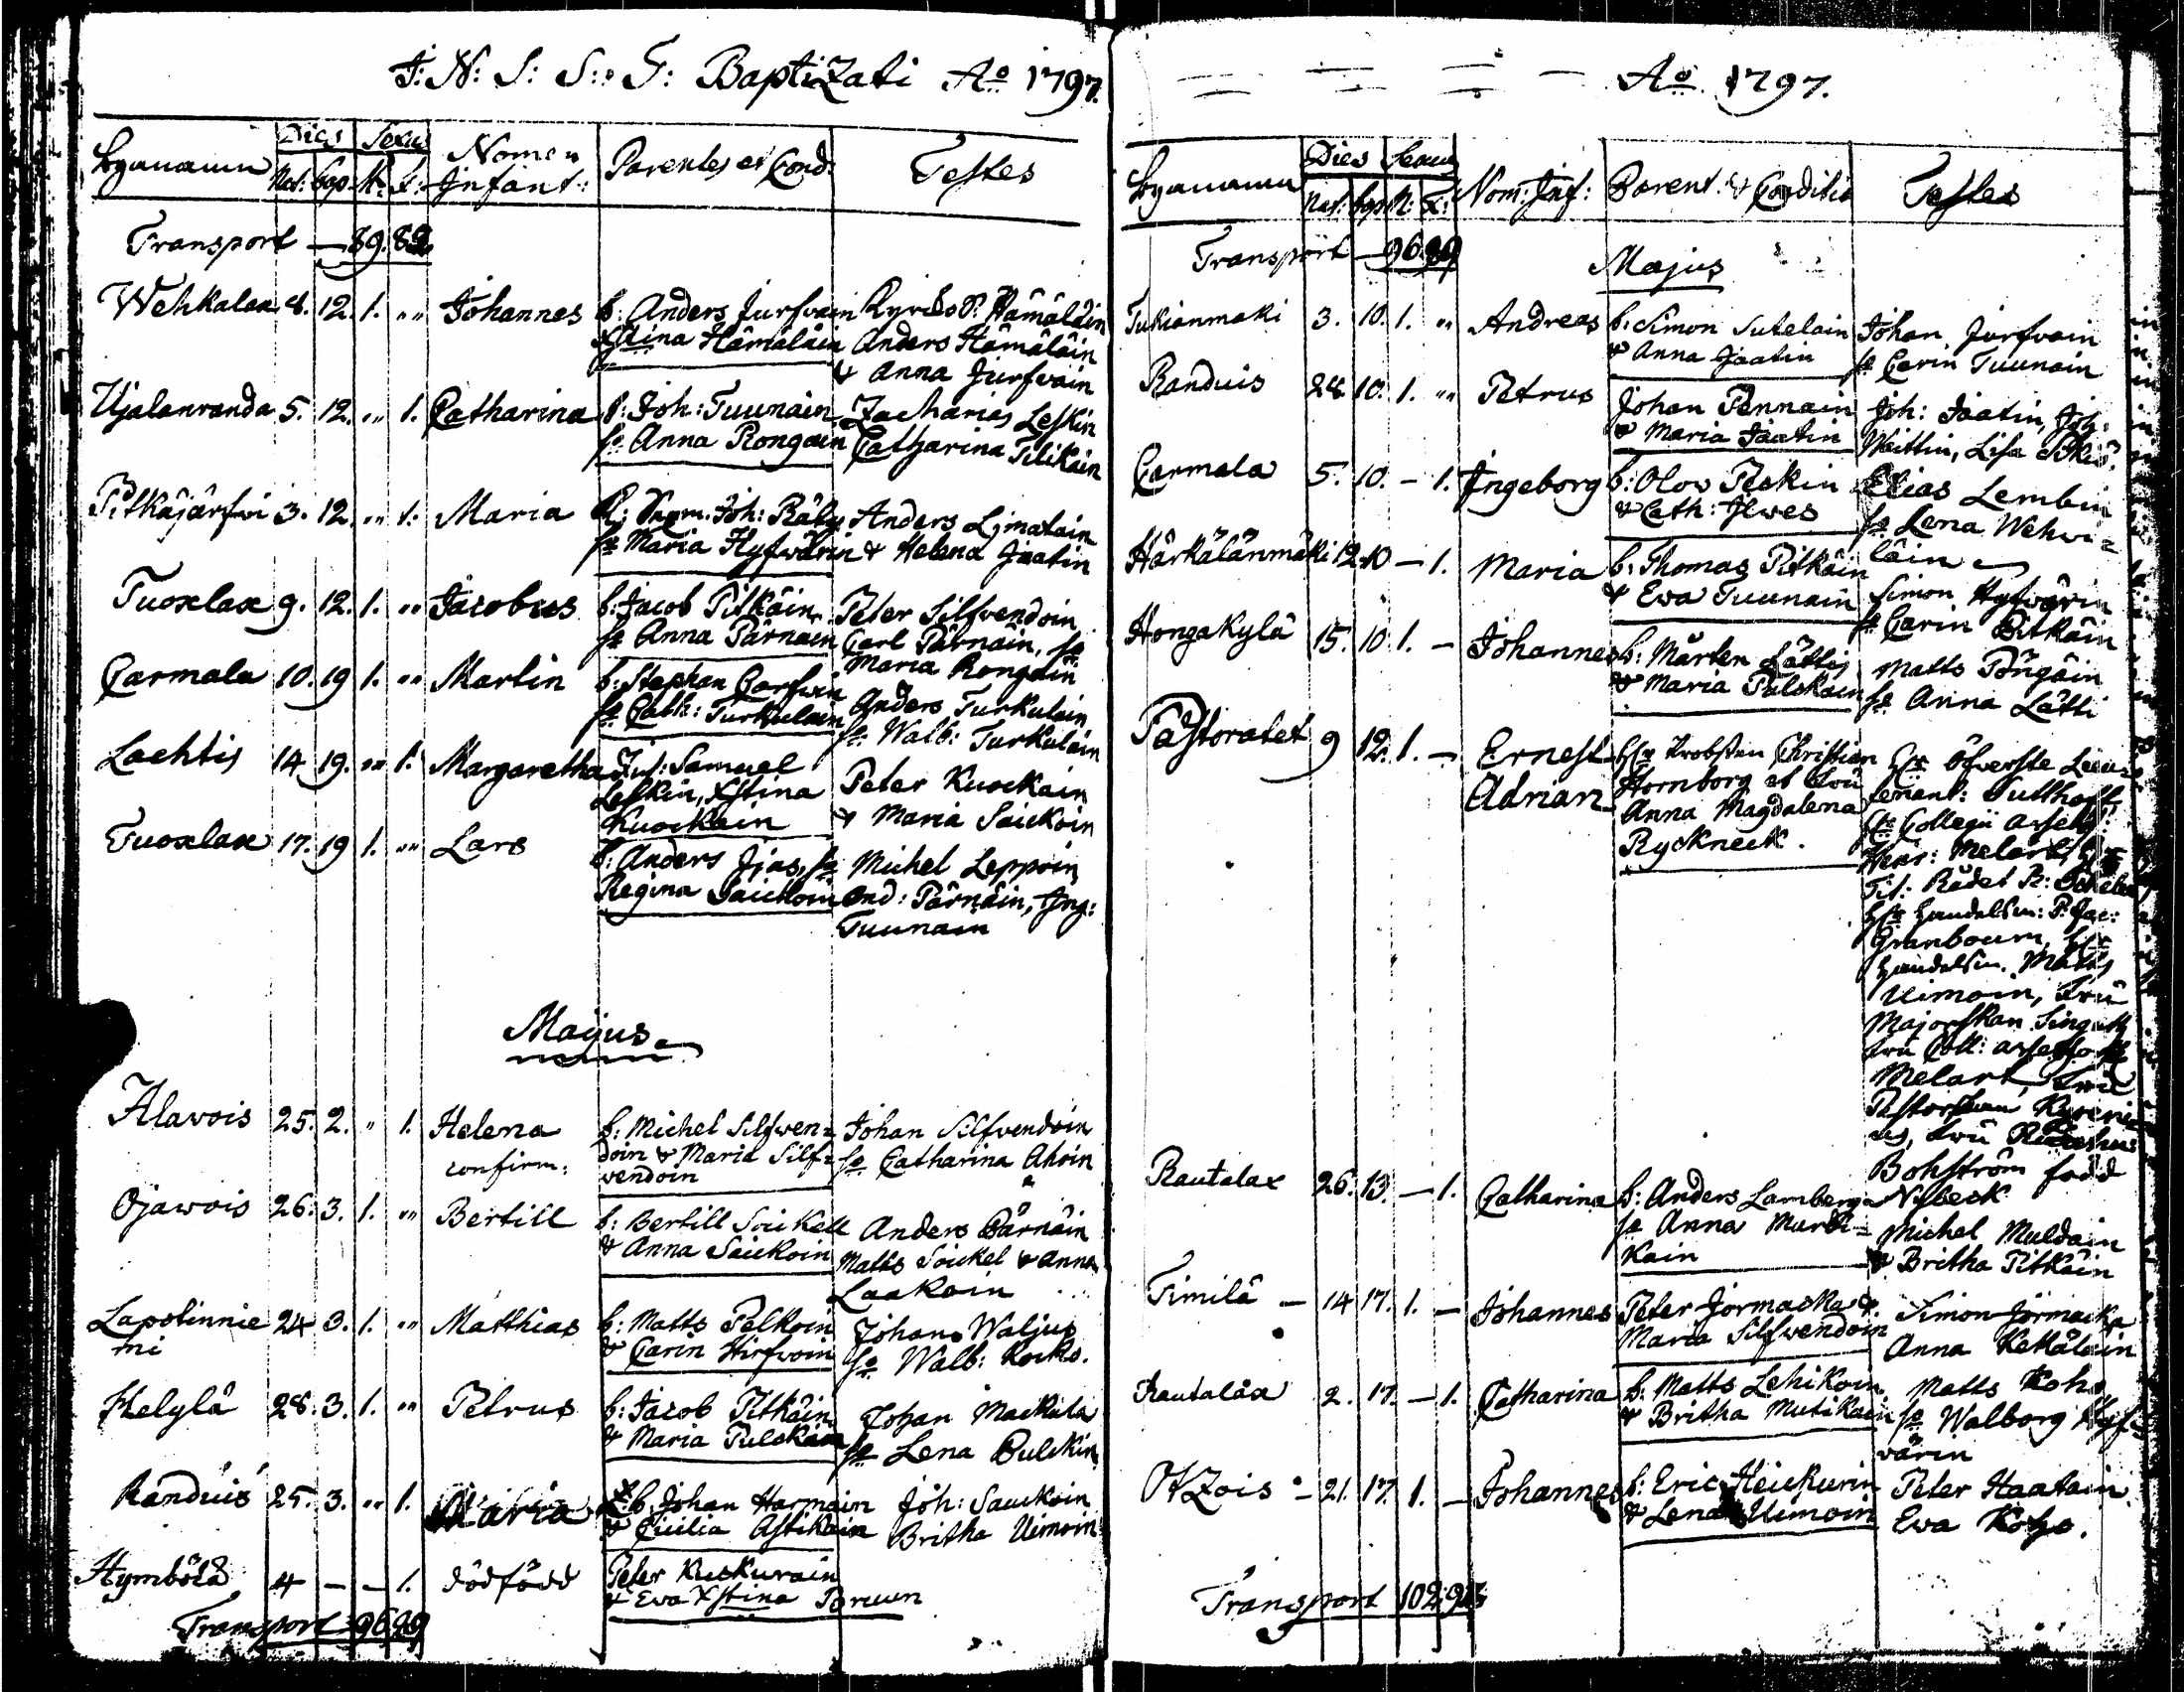 J: N: S: S: T: Baptizati Ao 1797.
Dies Sexus
Nat: bap. M. F. Nomen Infant: Parentes et Cond: Testes
Transport — 89. 82
Wehkalax 8. 12. 1. „ Johannes b: Anders Jurfvain
Xstina Hämäläin
Anders Hämäläin
& Anna Jurfvain
Ujalanranda 5. 12. „ 1. Catharina Joh: Tuunain
Anna Rongain
Zacharias Leskin
Catharina Tilikain
Pitkäjärfwi 3. 12. „ 1. Maria Joh: Räty
Maria Hyfwärin
Anders Limatain
& Helena Jaatin
Tuoxlax 9. 12. 1. „ Jacobus b: Jacob Pitkäin
Anna Pärnäin
Peter Silfvendoin
Carl Pärnäin,
Maria Rongain
Carmala 10. 19 1. „ Martin b: Stephan Carfwin
Cath: Turkulain
Anders Turkulain
Walb: Turkulain
Lachtis 14 19. „ 1. Margaretha Inh: Samuel
Leskin, Xstina
Kuockain
Peter Kuockain
& Maria Saickoin
Tuoxlax 17. 19 1. „ Lars b: Anders Ijas,
Regina Saickoin
Michel Leppoin
And: Pärnäin, Ing:
Tuunain
Majus
Alavois 25. 2. „ 1. Helena
confirm:
b: Michel Silfwen=
doin & Maria Silf=
vendoin
Johan Silfvendoin
Catharina Ahoin
Ojawois 26. 3. 1. „ Bertill b: Bertill Soickell
& Anna Saickoin
Anders Pärnäin
Matts Soickel & Anna
Laakoin
Lapotinnie
mi
24 3. 1. „ Matthias b: Matts Pelkoin
& Carin Hirfwoin
Johan Waljus
Walb: Kocko.
Helylä 28. 3. 1. „ Petrus b: Jacob Pitkäin
& Maria Pulckain
Johan Mackula
Lena Pulckin
Randuis 25. 3. „ 1. Maria b. Johan Harmain
& Cicilia Astikain
Joh: Sauckoin
Britha Uimoin
Hymbölä 4 — — 1. dödfödd Peter Kuckurain
& Ewa Xstina Bruun
Transport 96 89
Ao 1797.
Dies Sexus
Nat: bap. M: F: Nom: Inf: Parent: & Conditio Testes
Transport — 96 89
Majus
Tukianmäki 3. 10. 1. „ Andreas b: Simon Sutelain
& Anna Jaatin
Johan Jurfvain
Carin Tuunain
Randuis 24 10. 1. „ Petrus Johan Pennain
& Maria Jaatin
Joh: Jaatin, Joh:
Carmala 5. 10. — 1. Ingeborg b: Olov Peckin
& Cath: Ilwes
Elias Lembin
Lena Wehvi=
läin
Härkälänmäki 12. 10 — 1. Maria b: Thomas Pitkäin
& Ewa Tuunain
Simon Hyfwärin
Carin Pitkäin
Hongakylä 15. 10. 1. — Johannes b: Mårten Lätti
& Maria Pulckain
Matts Pöngäin
Anna Lätti
Pastoratet 9 12. 1. — Ernest
Adrian
Probsten Christian
Hornborg et Fru
Anna Magdalena
Ryckneck.
Öfverste Lieu=
tenant: Sutthoff
Collegii Assess:
Melart,
Granboum,
handelsm. Matts
Uimoin, Fru
Majorskan
Fru Coll: Assess
Melart, Fru
Bohström född
Nybeck
Rautalax 26. 13. — 1. Catharina b: Anders Lamberg
Anna Mardi=
kain
Michel Muldain
& Britha Pitkäin
Timilä — 14 17. 1. — Johannes Peter Jormacka &
Maria Silfvendoin
Simon Jörmacka
Anna Kekäläin
Rautalax 2. 17. — 1. Catharina b: Matts Lehikoin
& Britha Mutikain
Matts Koho
Walborg Hyf=
värin
Otzois — 21. 17. 1. — Johannes b: Eric Heickurin
& Lena Uimoin
Peter Haatain
Ewa Koho.
Transport 102. 93